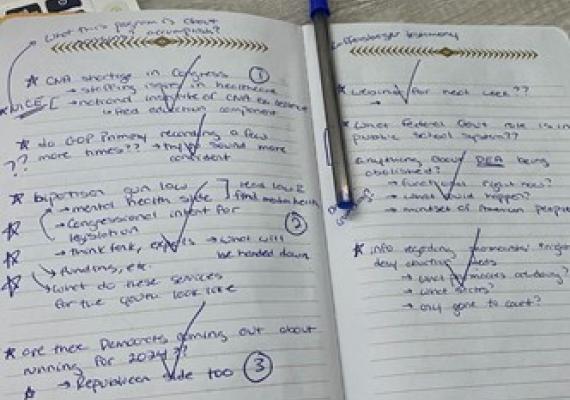 What this program is about
accomplish?
* CNA shortage in Congress ①
→ staffing issues in healthcare
* NICE [ → national institute of CNA to
education component
* do GOP Primary recording a few
?? more times?? → try sound more
confident
* bipartisan gun law
→ mental health side ] read law &
find mental health
Congressional intent for
legislation ②
→ think tank, experts → what will
be handed down
funding, etc.
→ what do these services
for the youth look like
* are there Democrats coming out about
running for 2024??
* → Republican side too ③
Raffensberger testimony
* for next week??
→
* what federal Govt role is in
public school system??
anything about DEA being
abolished?
→ functional right now?
→ what would happen?
→ mindset of American people
* info regarding
→ what are doing?
→ what states?
→ any gone to court?